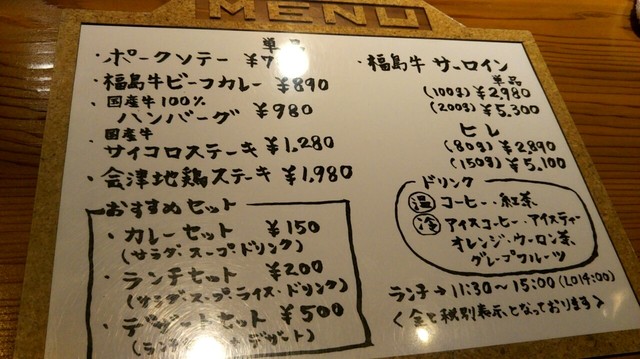 MENU
単品
・ポークソテー ¥7
・福島牛ビーフカレー ¥890
・国産牛100%
ハンバーグ ¥980
・国産牛
サイコロステーキ ¥1,280
・会津地鶏ステーキ ¥1,980
おすすめセット
・カレーセット ¥150
(サラダ・スープ・ドリンク)
・ランチセット ¥200
(サラダ・スープ・ライス・ドリンク)
・デザートセット ¥500
(ラン デザート)
・福島牛 サーロイン
単品
(100g) ¥2,980
(200g) ¥5,300
ヒレ
(80g) ¥2,890
(150g) ¥5,100
ドリンク
温 コーヒー・紅茶
冷 アイスコーヒー・アイスティー
オレンジ・ウーロン茶
グレープフルーツ
ランチ→11:30～15:00(LO14:00)
<全て税別表示となっております>